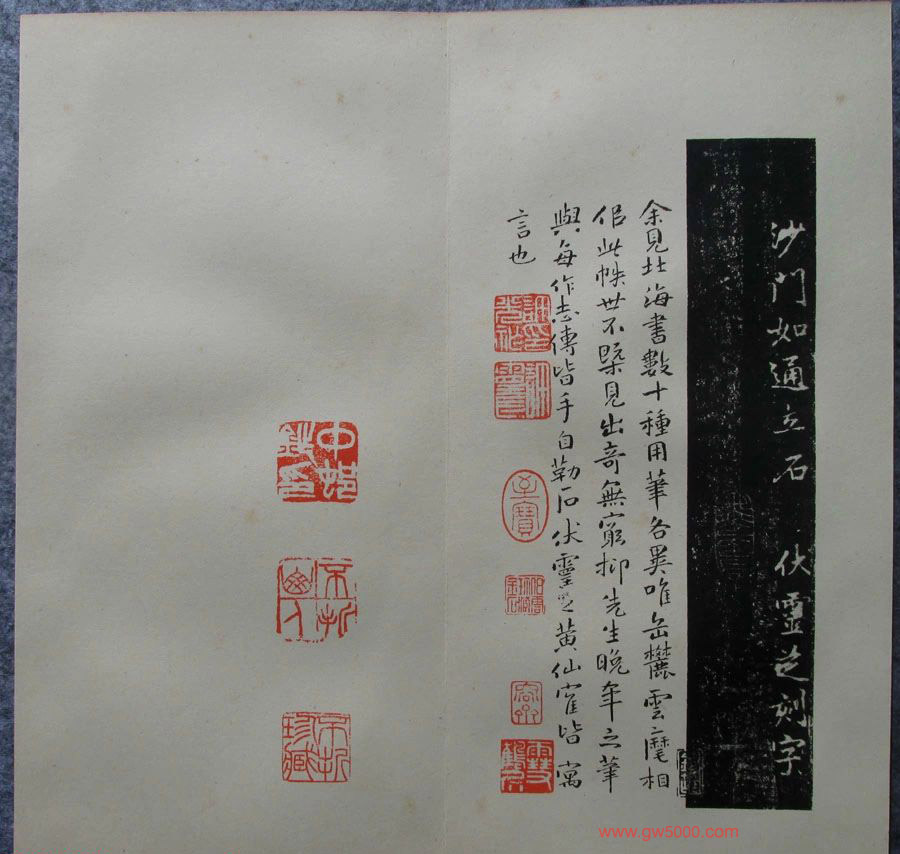 沙门如通立石 伏靈芝刻字
余見北海書數十種用筆各異唯岳麓雲麾相
佀此帙世不槩見出奇無窮抑先生晚年之筆
與每作志傳皆手自勒石伏靈芝黄仙雀皆寓
言也
中邨
不折
不折
珍藏
www.gw5000.com